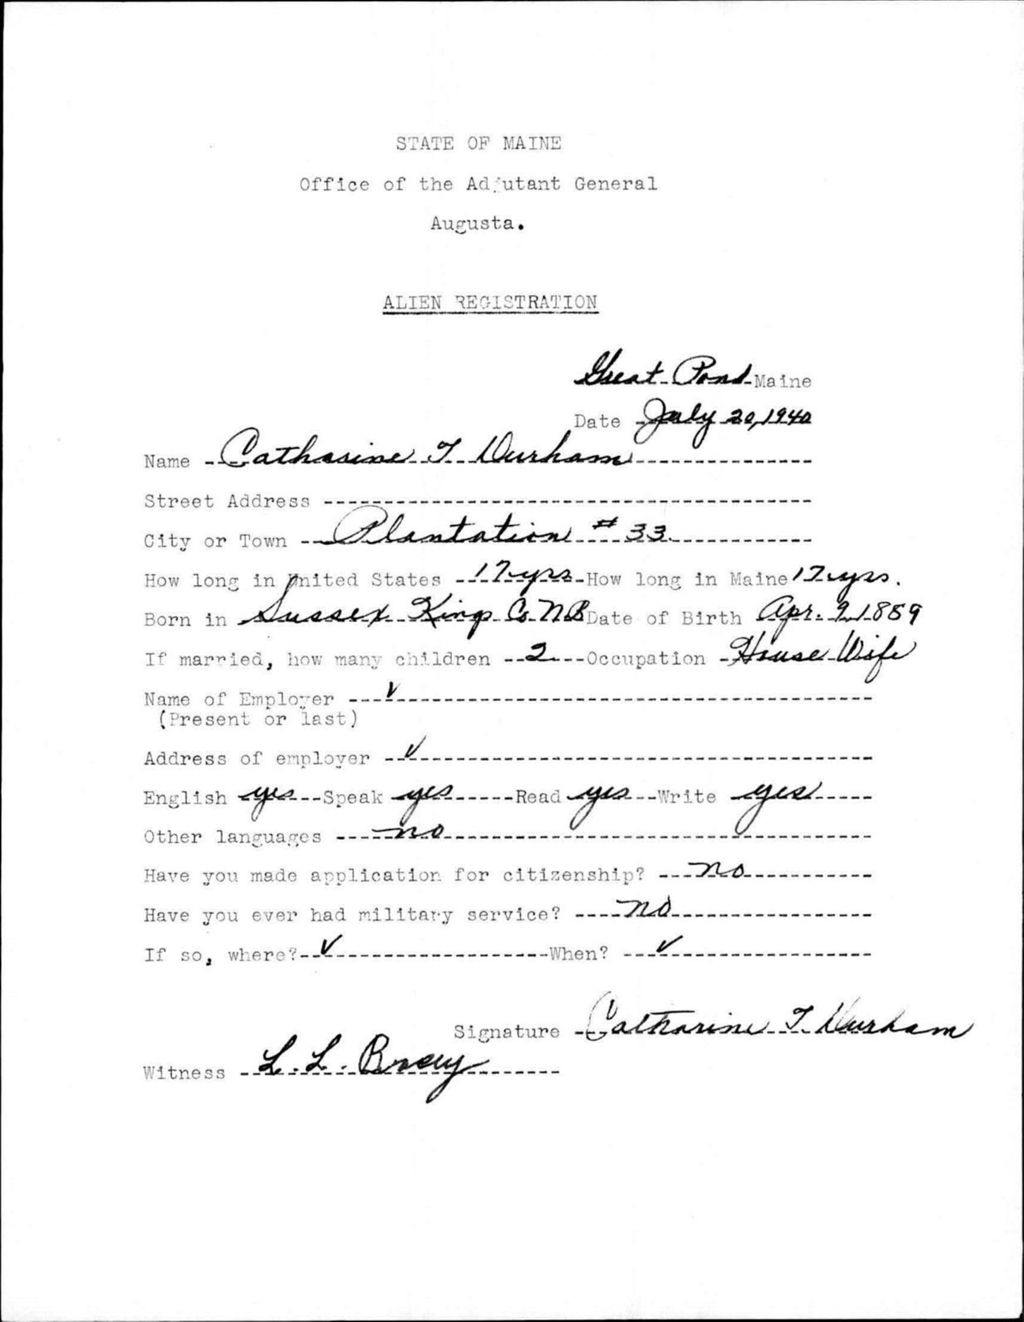 STATE OF MAINE
Office of the Adjutant General
Augusta.
ALIEN REGISTRATION
Great Pond Maine
Date July 20, 1940
Name Catharine T Durham
Street Address
City or Town Plantation # 33
How long in United States 17 yrs How long in Maine 17 yrs.
Born in Sussex King Co NB Date of Birth Apr. 9, 1889
If married, how many children 2 Occupation House Wife
Name of Employer ✓
(Present or last)
Address of employer ✓
English yes Speak yes Read yes Write yes
Other languages no
Have you made application for citizenship? no
Have you ever had military service? no
If so, where? ✓ When? ✓
Signature Catharine T. Durham
Witness L. L.